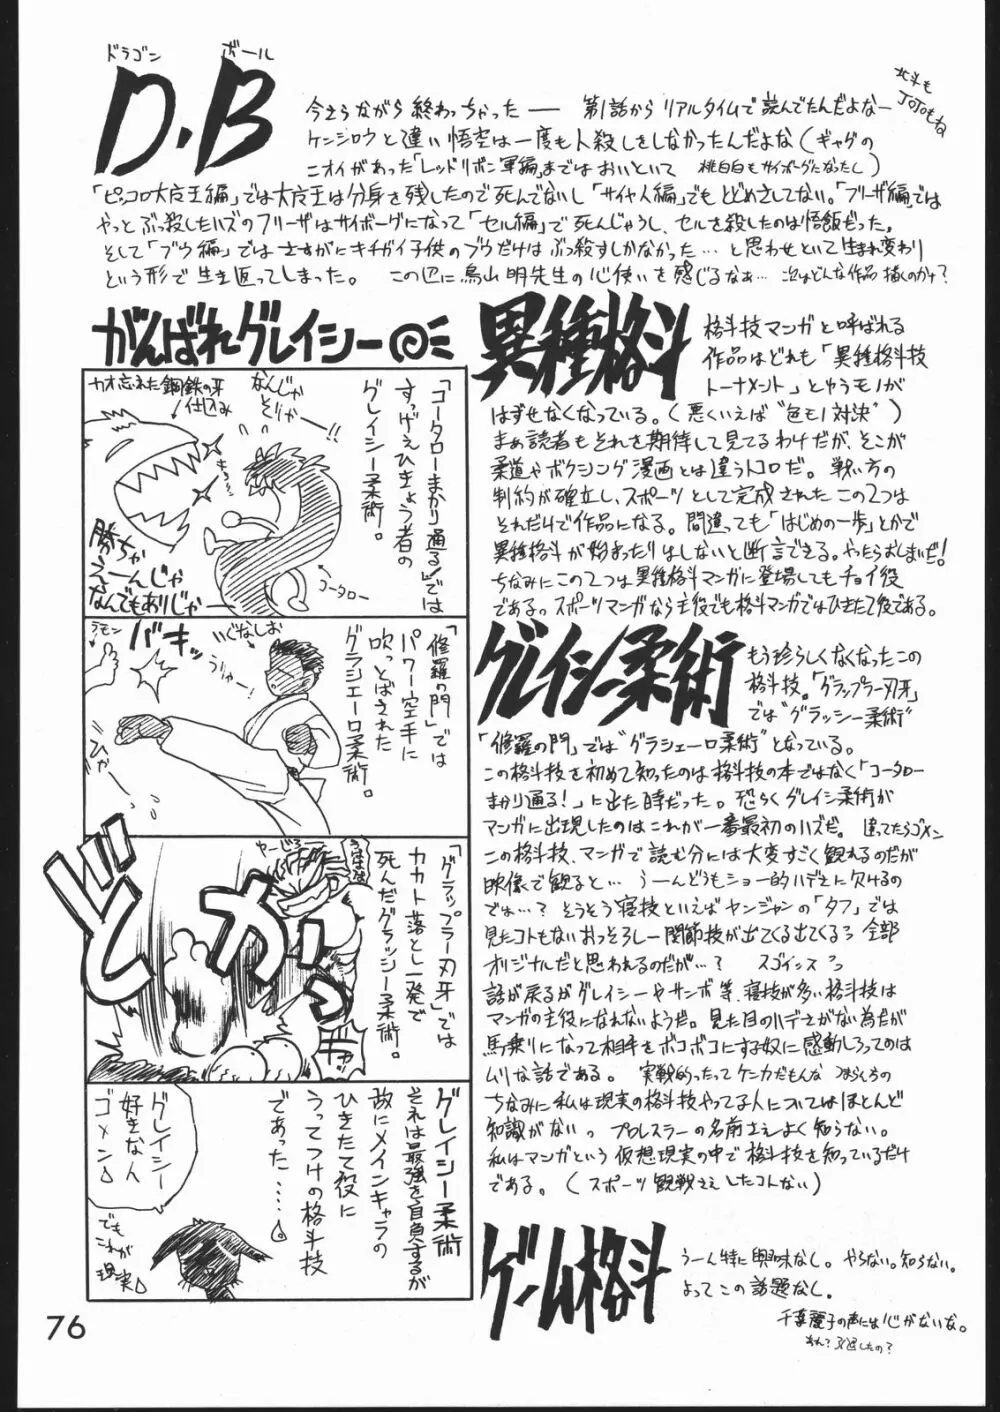 ドラゴン ボール
D.B
北斗も
JOJOもね
今さらながら終わっちゃった── 第1話からリアルタイムで読んでたんだよなー
ケンジロウと違い悟空は一度も人殺しをしなかったんだよな(ギャグの
ニオイがあった「レッドリボン軍編」まではおいといて 桃白白もサイボーグになったし)
「ピッコロ大魔王編」では大魔王は分身を残したので死んでないし「サイヤ人編」でもとどめさしてない。「フリーザ編」では
やっとぶっ殺したハズのフリーザはサイボーグになって「セル編」で死んじゃうし、セルを殺したのは悟飯だった。
そして「ブウ編」ではさすがにキチガイ子供のブウだけはぶっ殺すしかなかった…と思わせといて生まれ変わり
という形で生き返ってしまった。 この辺に鳥山明先生の心使いを感じるなぁ… 次はどんな作品描くのかナ?
がんばれグレイシー
カオ忘れた鋼鉄の牙
仕込み
なんじゃ
そりゃー!!
「コータローまかり通る!」では
すっげえひきょう者の
グレイシー柔術。
勝ちゃ
えーんじゃ
なんでもありじゃー
コータロー
ラモン
バキッ
いぐなしお
「修羅の門」では
パワー空手に
吹っとばされた
グラシエーロ柔術。
ひゃー
どかっ
「グラップラー刃牙」では
カカト落とし一発で
死んだグラッシー柔術。
グレイシー柔術
それは最強を自負するが
故にメインキャラの
ひきたて役に
うってつけの格斗技
であった……。
グレイシー
好きな人
ゴメン
でも
これが
現実
異種格斗
格斗技マンガと呼ばれる
作品はどれも「異種格斗技
トーナメント」とゆうモノが
はずせなくなっている。(悪くいえば“色もの対決”)
まぁ読者もそれを期待して見てるわけだが、そこが
柔道やボクシング漫画とは違うトコロだ。 戦い方の
制約が確立し、スポーツとして完成されたこの2つは
それだけで作品になる。間違っても「はじめの一歩」とかで
異種格斗が始まったりはしないと断言できる。やったらおしまいだ!
ちなみにこの2つは異種格斗マンガに登場してもチョイ役
である。スポーツマンガなら主役でも格斗マンガではひきたて役である。
グレイシー柔術
もう珍らしくなくなったこの
格斗技。「グラップラー刃牙」
では“グラッシー柔術”
「修羅の門」では“グラシエーロ柔術”となっている。
この格斗技を初めて知ったのは格斗技の本ではなく「コータロー
まかり通る!」に出た時だった。恐らくグレイシ柔術が
マンガに出現したのはこれが一番最初のハズだ。 違ってたらゴメン
この格斗技、マンガで読む分には大変すごく観れるのだが
映像で観ると… うーんどうもショー的ハデさに欠けるの
では…? そうそう寝技といえばヤンジャンの「タフ」では
見たコトもないおっそろしー関節技が出てくる出てくる 全部
オリジナルだと思われるのだが…? スゴインスっ
話が戻るがグレイシーやサンボ等、寝技が多い格斗技は
マンガの主役になれないようだ。見た目のハデさがない為だが
馬乗りになって相手をボコボコにする奴に感動しろってのは
ムリな話である。 実戦的ったってケンカだもんな
ちなみに私は現実の格斗技やってる人についてはほとんど
知識がない。 プロレスラーの名前さえよく知らない。
私はマンガという仮想現実の中で格斗技を知っているだけ
である。(スポーツ観戦さえしたコトない)
ゲーム格斗
うーん特に興味なし。やらない。知らない。
よってこの話題なし。
千葉麗子の声には心がないな。
あれ?引退したの?
76